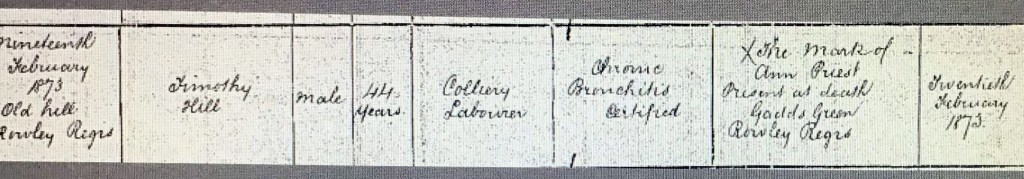 Nineteenth
February
1873
Old hill
Rowley Regis
Timothy
Hill
Male
44
Years
Colliery
Labourer
Chronic
Bronchitis
Certified
X The Mark of
Ann Priest
Present at death
Gadds Green
Rowley Regis
Twentieth
February
1873.